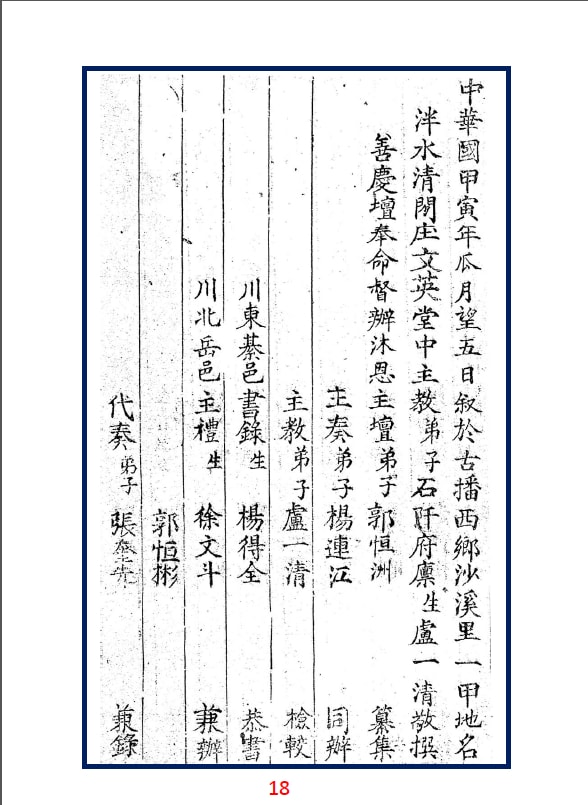 中華國甲寅年瓜月望五日敘於古播西鄉沙溪里一甲地名
泮水清閑庄文英堂中主教弟子石阡府廩生盧一清敬撰
善慶壇奉命督辦沐恩主壇弟子郭恒洲 纂集
主奏弟子楊連江 同辦
主教弟子盧一清 檢較
川東綦邑書錄生楊得全 恭書
川北岳邑主禮生徐文斗 兼辦
郭恒彬
代奏弟子張 兼錄
18